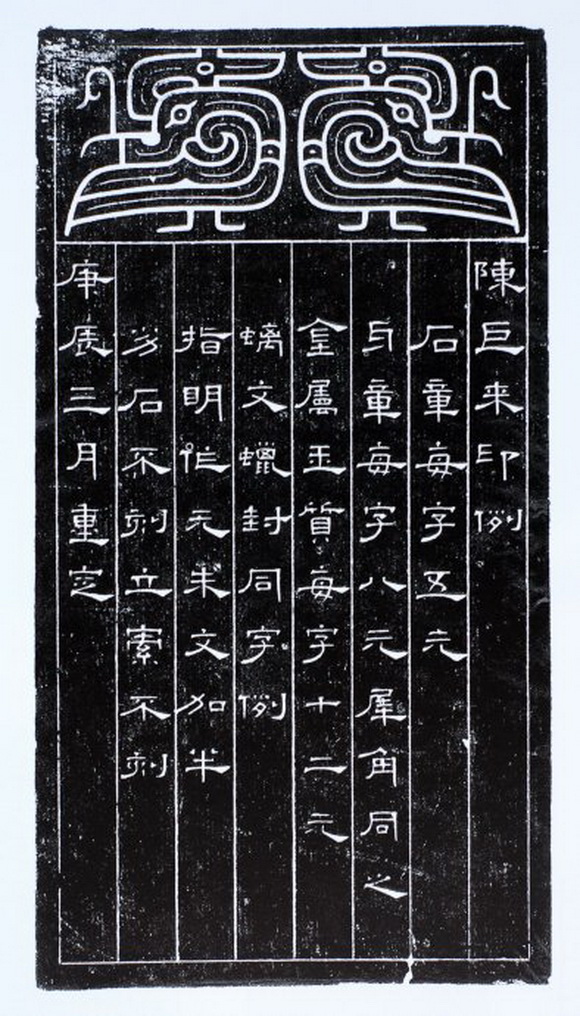 陳巨来印例
石章每字五元
牙章每字八元犀角同之
金屬玉質每字十二元
螭文蠟封同字例
指明作元朱文加半
劣石不刻立索不刻
庚辰三月重定